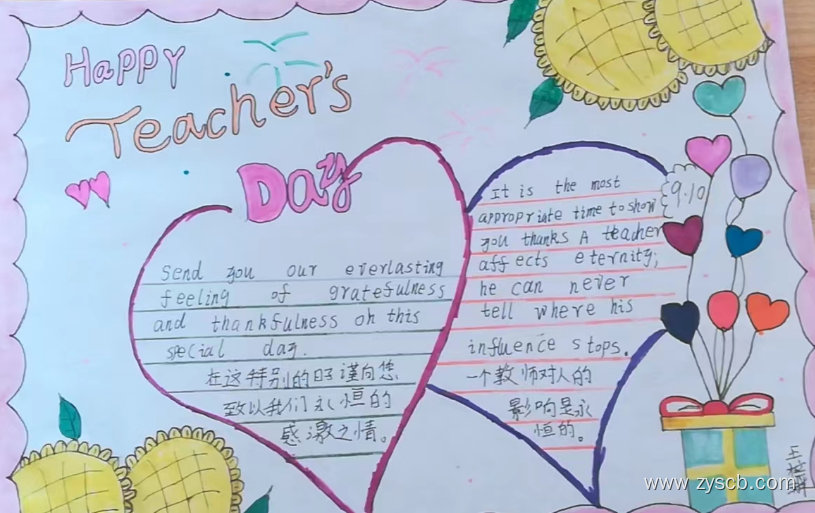 Happy
Teacher's
Day
Send you our everlasting
feeling of gratefulness
and thankfulness on this
special day.
在这特别的日谨向您
致以我们永恒的
感激之情。
It is the most
appropriate time to show
you thanks A teacher
affects eternity;
he can never
tell where his
influence stops.
一个教师对人的
影响是永
恒的。
9.10
www.zyscb.com